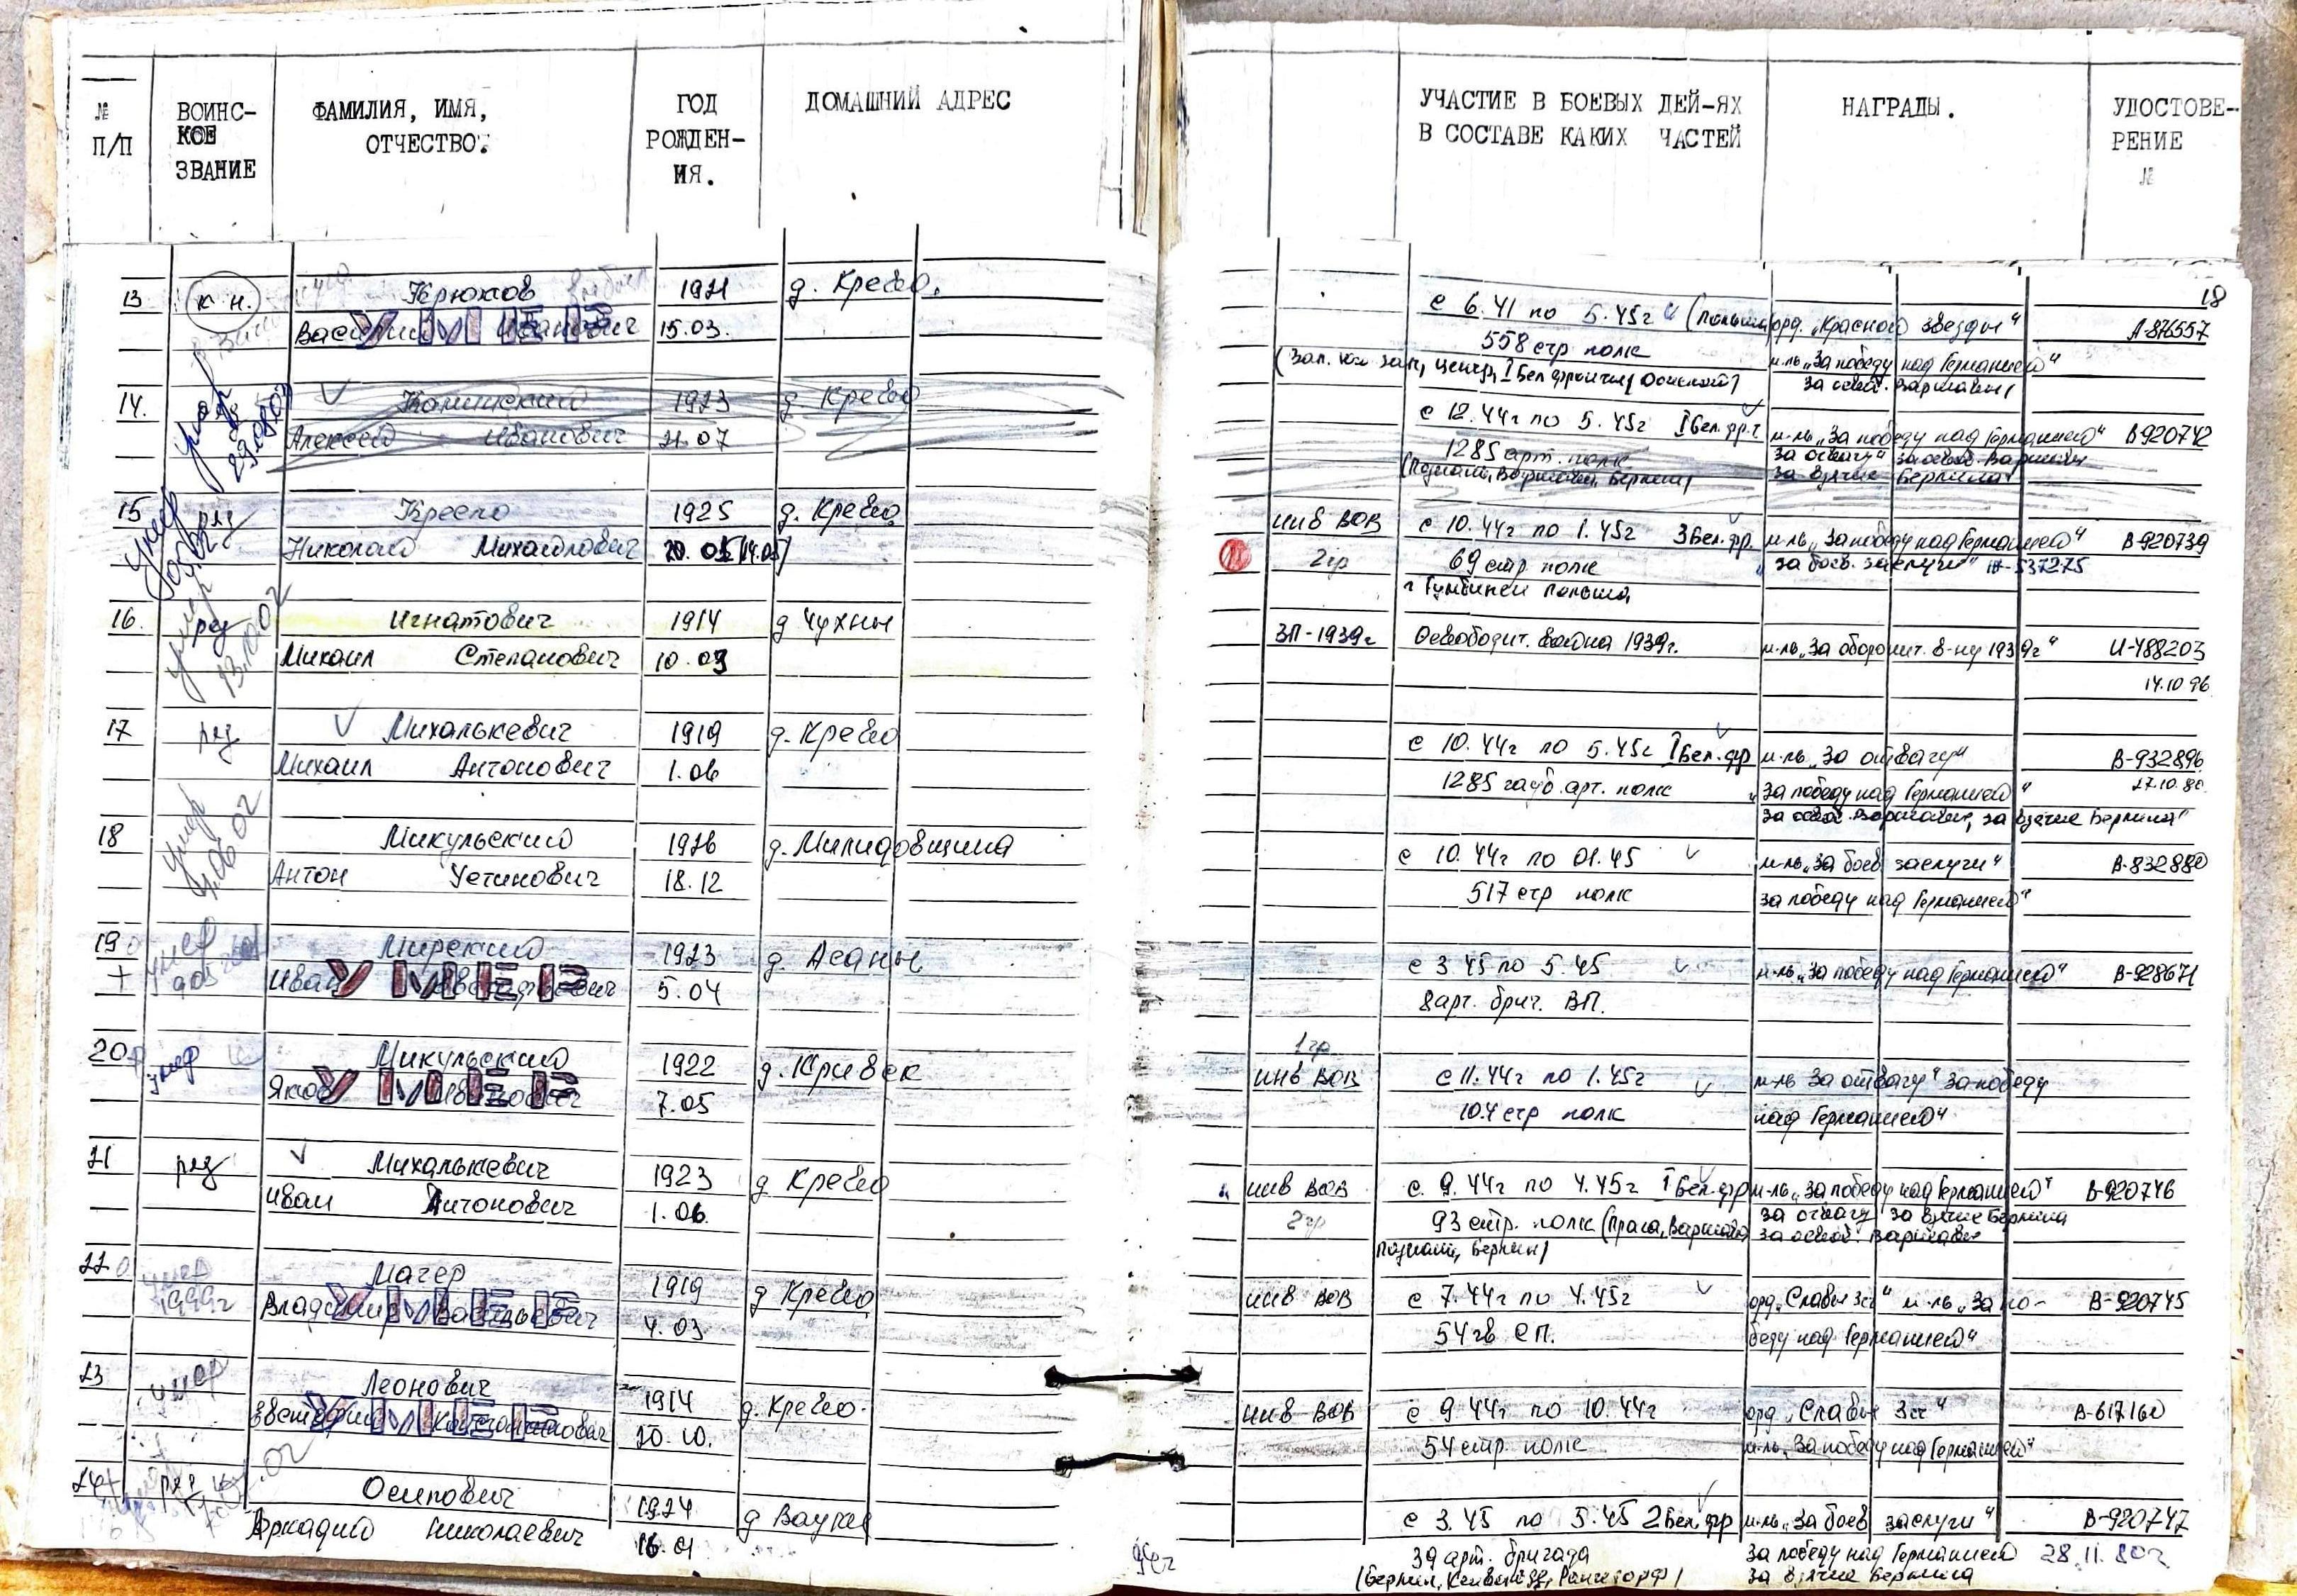 № П/П
ВОИНС-
КОЕ
ЗВАНИЕ
ФАМИЛИЯ, ИМЯ,
ОТЧЕСТВО.
ГОД
РОЖДЕН-
ИЯ.
ДОМАШНИЙ АДРЕС
УЧАСТИЕ В БОЕВЫХ ДЕЙ-ЯХ
В СОСТАВЕ КАКИХ ЧАСТЕЙ
НАГРАДЫ.
УДОСТОВЕ-
РЕНИЕ
№
18
13 к.н. Крюков 1921 д. Крево.
Василий Иванович 15.03.
УМЕР
с 6.41 по 5.45г (польша) орд. „Красной звезды" А-876557
558 стр полк м-ль „За победу над Германией"
За освоб. Варшавы
14. Алексей Иванович 1923 д. Крево
21.07
умер
29.08.03
с 12.44г по 5.45г I Бел.фр. м-ль „За победу над Германией" В-920742
1285 арт. полк За отвагу" за освоб Варшавы
(Познань, Варшава, Берлин) За взятие Берлина"
15 ряд 1925 д. Крево
Николай Михайлович 20.05 (14.05)
умер
инв ВОВ с 10.44г по 1.45г 3 Бел.фр. м-ль „За победу над Германией" В-920739
2гр 69 стр полк „за боев. заслуги"
г Гумбинен Польша
16. ряд Игнатович 1914 д Чухны
Михаил Степанович 10.03
умер
13.10.02
ЗП-1939г Освободит. война 1939г. м-ль „За оборонит. в-ну 1939г" И-488203
14.10 96
17 ряд Михалькевич 1919 д. Крево
Михаил Антонович 1.06
с 10.44г по 5.45г I Бел.фр м-ль „За отвагу" В-932896
1285 гауб. арт. полк „За победу над Германией" 27.10.80
за освоб. Варшавы, за взятие Берлина"
18 Микульский 1926 д. Милидовщина
Антон Устинович 18.12
умер
с 10.44г по 01.45 м-ль „За боев заслуги" В-832880
517 стр полк За победу над Германией"
19 Мирский 1923 д. Асаны
Иван 5.04
УМЕР
умер
с 3 45 по 5.45 м-ль „За победу над Германией" В-928671
8 арт. бриг. ВП.
20 Микульский 1922 д. Кривск
Яков 7.05
УМЕР
умер
1гр
инв ВОВ с 11.44г по 1.45г м-ль За отвагу" За победу
104 стр полк над Германией"
21 ряд Михалькевич 1923 д Крево
Иван Антонович 1.06.
инв ВОВ с 9.44г по 4.45г I Бел.фр м-ль „За победу над Германией" В-920746
2гр 93 стр. полк (Прага, Варшава За отвагу За взятие Берлина
Познань, Берлин) За освоб. Варшавы
22 Магер 1919 д Крево
Владимир Васильевич 4.03
УМЕР
умер
1999г
инв ВОВ с 7.44г по 4.45г орд. „Славы 3ст" м-ль „За по- В-920745
54 гв СП. беду над Германией"
23 Леонович 1914 д. Крево.
Константинович 20.10.
УМЕР
умер
инв ВОВ с 9 44г по 10.44г орд „Славы 3ст" В-617160
54 стр. полк м-ль „За победу над Германией"
24 ряд Осипович 1924 д
Аркадий Николаевич 16.01
с 3.45 по 5.45 2 Бел.фр м-ль „За боев заслуги" В-920747
39 арт. бригада За победу над Германией 28.11.80г
За взятие Берлина